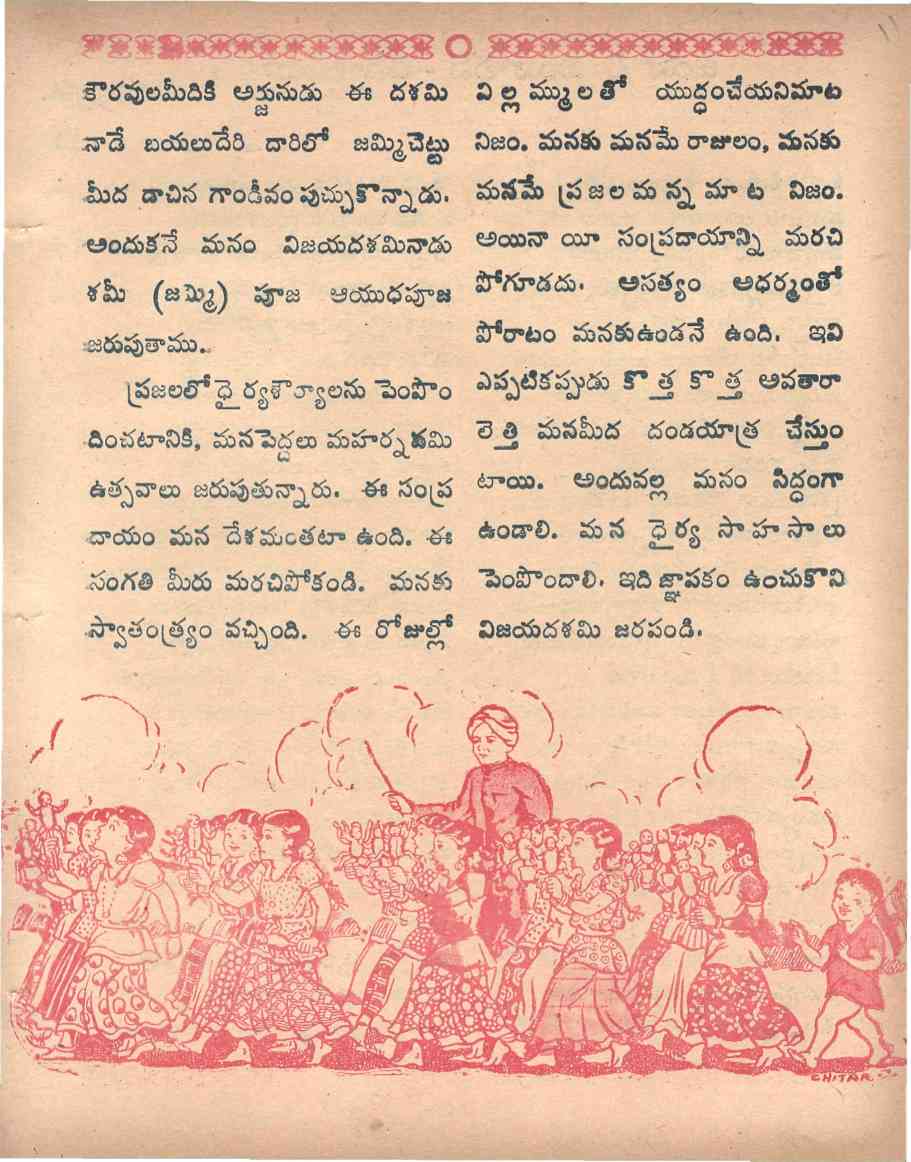 కౌరవులమీదికి అర్జునుడు ఈ దశమి
నాడే బయలుదేరి దారిలో జమ్మిచెట్టు
మీద డాచిన గాండీవం పుచ్చుకొన్నాడు.
అందుకనే మనం విజయదశమినాడు
శమీ (జమ్మి) పూజ ఆయుధపూజ
జరుపుతాము.
ప్రజలలో ధైర్యశౌర్యాలను పెంపొం
దించటానికి, మనపెద్దలు మహర్నవమి
ఉత్సవాలు జరుపుతున్నారు. ఈ సంప్ర
దాయం మన దేశమంతటా ఉంది. ఈ
సంగతి మీరు మరచిపోకండి. మనకు
స్వాతంత్ర్యం వచ్చింది. ఈ రోజుల్లో
విల్లమ్ములతో యుద్ధంచేయనిమాట
నిజం. మనకు మనమే రాజులం, మనకు
మనమే ప్రజలమన్నమాట నిజం.
అయినా యీ సంప్రదాయాన్ని మరచి
పోగూడదు. అసత్యం అధర్మంతో
పోరాటం మనకుఉండనే ఉంది. ఇవి
ఎప్పటికప్పుడు కొత్త కొత్త అవతారా
లెత్తి మనమీద దండయాత్ర చేస్తుం
టాయి. అందువల్ల మనం సిద్ధంగా
ఉండాలి. మన ధైర్య సాహసాలు
పెంపొందాలి. ఇది జ్ఞాపకం ఉంచుకొని
విజయదశమి జరపండి.
CHITRA